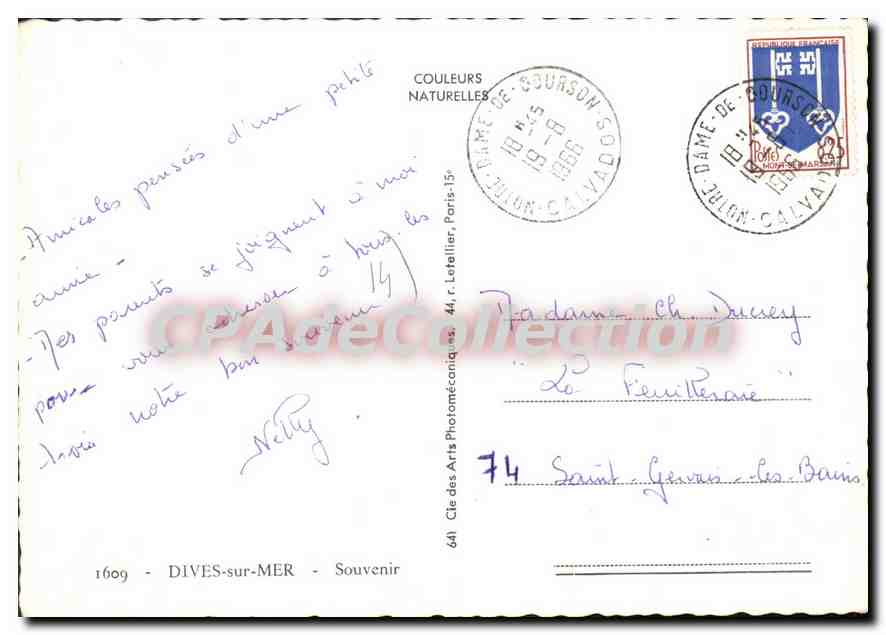 COULEURS
NATURELLES
NOTRE-DAME-DE-COURSON
18 H 45
19-8
1966
CALVADOS
REPUBLIQUE FRANÇAISE
Postes 0,25
MONT-DE-MARSAN
NOTRE-DAME-DE-COURSON
18 H 45
19-8
1966
CALVADOS
- Amicales pensées d'une petite
amie -
- Mes parents se joignent à moi
pour vous adresser à tous les
trois notre bon souvenir
14)
Nelly.
Madame Ch. Ducrey
"La Feuilleraie"
74 Saint-Gervais-les-Bains
641 Cie des Arts Photomécaniques. 44, r. Letellier, Paris-15e
1609 - DIVES-sur-MER - Souvenir
CPAdeCollection